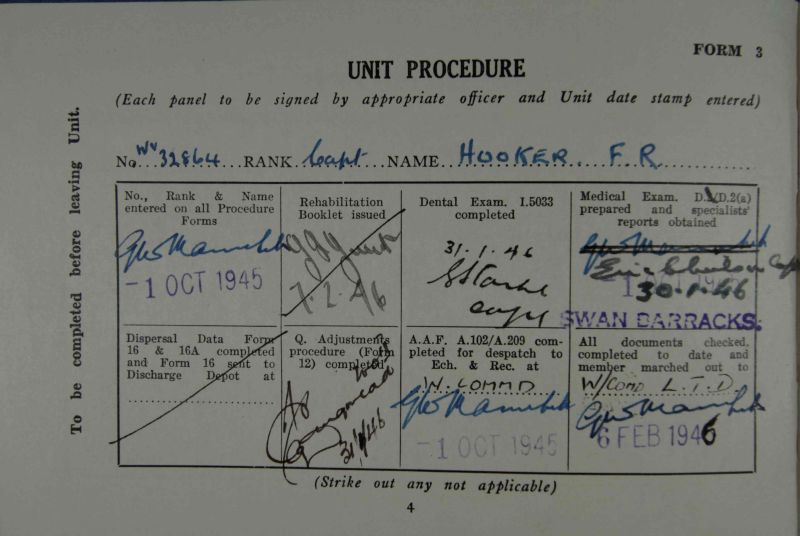 FORM 3
UNIT PROCEDURE
(Each panel to be signed by appropriate officer and Unit date stamp entered)
To be completed before leaving Unit.
No. WV 32864 RANK Capt NAME HOOKER. F. R.
No., Rank & Name
entered on all Procedure
Forms
-1 OCT 1945
Rehabilitation
Booklet issued
7.2.46
Dental Exam. I.5033
completed
31.1.46
Capt
Medical Exam. D.2(a)
prepared and specialists'
reports obtained
30.1.46
SWAN BARRACKS.
Dispersal Data Form
16 & 16A completed
and Form 16 sent to
Discharge Depot at
Q. Adjustments
procedure (Form
12) completed
31/1/46
A.A.F. A.102/A.209 com-
pleted for despatch to
Ech. & Rec. at
W. COMMD
-1 OCT 1945
All documents checked,
completed to date and
member marched out to
W/Comd L.T.D.
6 FEB 1946
(Strike out any not applicable)
4